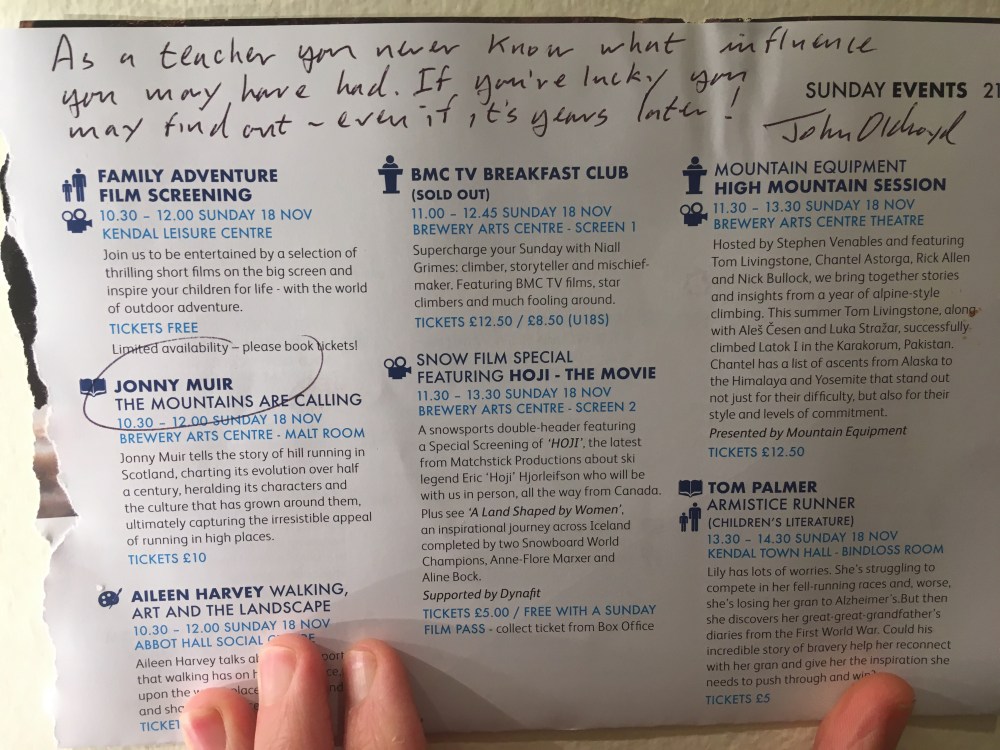 As a teacher you never know what influence
you may have had. If you're lucky you
may find out - even if it's years later!
John Oldroyd
SUNDAY EVENTS 21
FAMILY ADVENTURE
FILM SCREENING
10.30 – 12.00 SUNDAY 18 NOV
KENDAL LEISURE CENTRE
Join us to be entertained by a selection of
thrilling short films on the big screen and
inspire your children for life - with the world
of outdoor adventure.
TICKETS FREE
Limited availability – please book tickets!
JONNY MUIR
THE MOUNTAINS ARE CALLING
10.30 – 12.00 SUNDAY 18 NOV
BREWERY ARTS CENTRE - MALT ROOM
Jonny Muir tells the story of hill running in
Scotland, charting its evolution over half
a century, heralding its characters and
the culture that has grown around them,
ultimately capturing the irresistible appeal
of running in high places.
TICKETS £10
AILEEN HARVEY WALKING,
ART AND THE LANDSCAPE
10.30 – 12.00 SUNDAY 18 NOV
ABBOT HALL SOCIAL
Aileen Harvey talks
that walking has on
upon the
and
BMC TV BREAKFAST CLUB
(SOLD OUT)
11.00 – 12.45 SUNDAY 18 NOV
BREWERY ARTS CENTRE - SCREEN 1
Supercharge your Sunday with Niall
Grimes: climber, storyteller and mischief-
maker. Featuring BMC TV films, star
climbers and much fooling around.
TICKETS £12.50 / £8.50 (U18S)
SNOW FILM SPECIAL
FEATURING HOJI - THE MOVIE
11.30 – 13.30 SUNDAY 18 NOV
BREWERY ARTS CENTRE - SCREEN 2
A snowsports double-header featuring
a Special Screening of ‘HOJI’, the latest
from Matchstick Productions about ski
legend Eric ‘Hoji’ Hjorleifson who will be
with us in person, all the way from Canada.
Plus see ‘A Land Shaped by Women’,
an inspirational journey across Iceland
completed by two Snowboard World
Champions, Anne-Flore Marxer and
Aline Bock.
Supported by Dynafit
TICKETS £5.00 / FREE WITH A SUNDAY
FILM PASS - collect ticket from Box Office
MOUNTAIN EQUIPMENT
HIGH MOUNTAIN SESSION
11.30 – 13.30 SUNDAY 18 NOV
BREWERY ARTS CENTRE THEATRE
Hosted by Stephen Venables and featuring
Tom Livingstone, Chantel Astorga, Rick Allen
and Nick Bullock, we bring together stories
and insights from a year of alpine-style
climbing. This summer Tom Livingstone, along
with Aleš Česen and Luka Stražar, successfully
climbed Latok I in the Karakorum, Pakistan.
Chantel has a list of ascents from Alaska to
the Himalaya and Yosemite that stand out
not just for their difficulty, but also for their
style and levels of commitment.
Presented by Mountain Equipment
TICKETS £12.50
TOM PALMER
ARMISTICE RUNNER
(CHILDREN'S LITERATURE)
13.30 – 14.30 SUNDAY 18 NOV
KENDAL TOWN HALL - BINDLOSS ROOM
Lily has lots of worries. She's struggling to
compete in her fell-running races and, worse,
she's losing her gran to Alzheimer's.But then
she discovers her great-great-grandfather's
diaries from the First World War. Could his
incredible story of bravery help her reconnect
with her gran and give her the inspiration she
needs to push through and win?
TICKETS £5